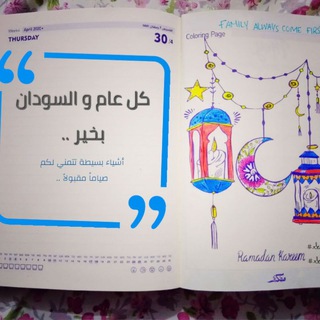 April 2020
THURSDAY
30/4
كل عام و السودان
بخير ..
أشياء بسيطة تتمني لكم
صياماً مقبولاً ..
FAMILY ALWAYS COME FIRS
Coloring Page
Ramadan Kareem